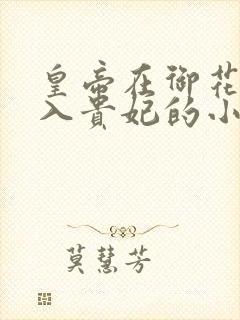 皇帝在御花
入贵妃的小
莫慧芳